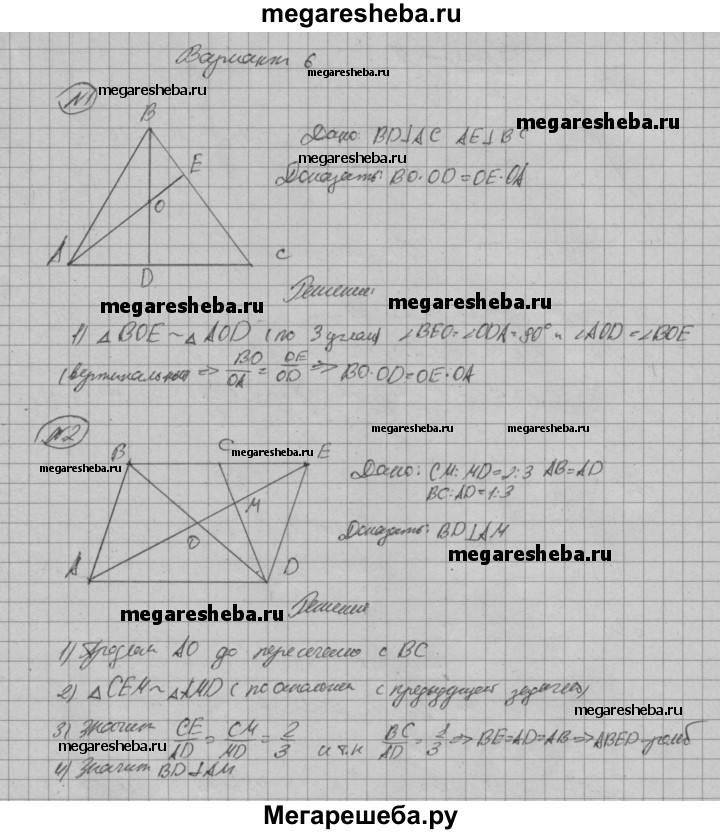 megaresheba.ru
Вариант 6
megaresheba.ru
№1
megaresheba.ru
B
megaresheba.ru
Дано: BD⊥AC AE⊥BC
E
megaresheba.ru
Доказать: BO·OD=OE·OA
O
A
C
D
Решение:
megaresheba.ru
megaresheba.ru
1) △BOE ~ △AOD (по 3 углам) ∠BEO=∠ODA=90° и ∠AOD=∠BOE
(вертикальные => BO/OA = OE/OD => BO·OD=OE·OA
№2
megaresheba.ru
megaresheba.ru
B
C
E
megaresheba.ru
megaresheba.ru
Дано: CM:MD=2:3 AB=AD
BC:AD=1:3
M
O
Доказать: BD⊥AM
megaresheba.ru
A
D
megaresheba.ru
Решение
1) Продлим AO до пересечению с BC
2) △CEM~△AMD (по аналогии с предыдущей задачей)
megaresheba.ru
3) Значит CE/AD = CM/MD = 2/3 и т.к BC/AD = 1/3 => BE=AD=AB=> ABED-ромб
megaresheba.ru
megaresheba.ru
4) Значит BD⊥AM
Мегарешеба.ру